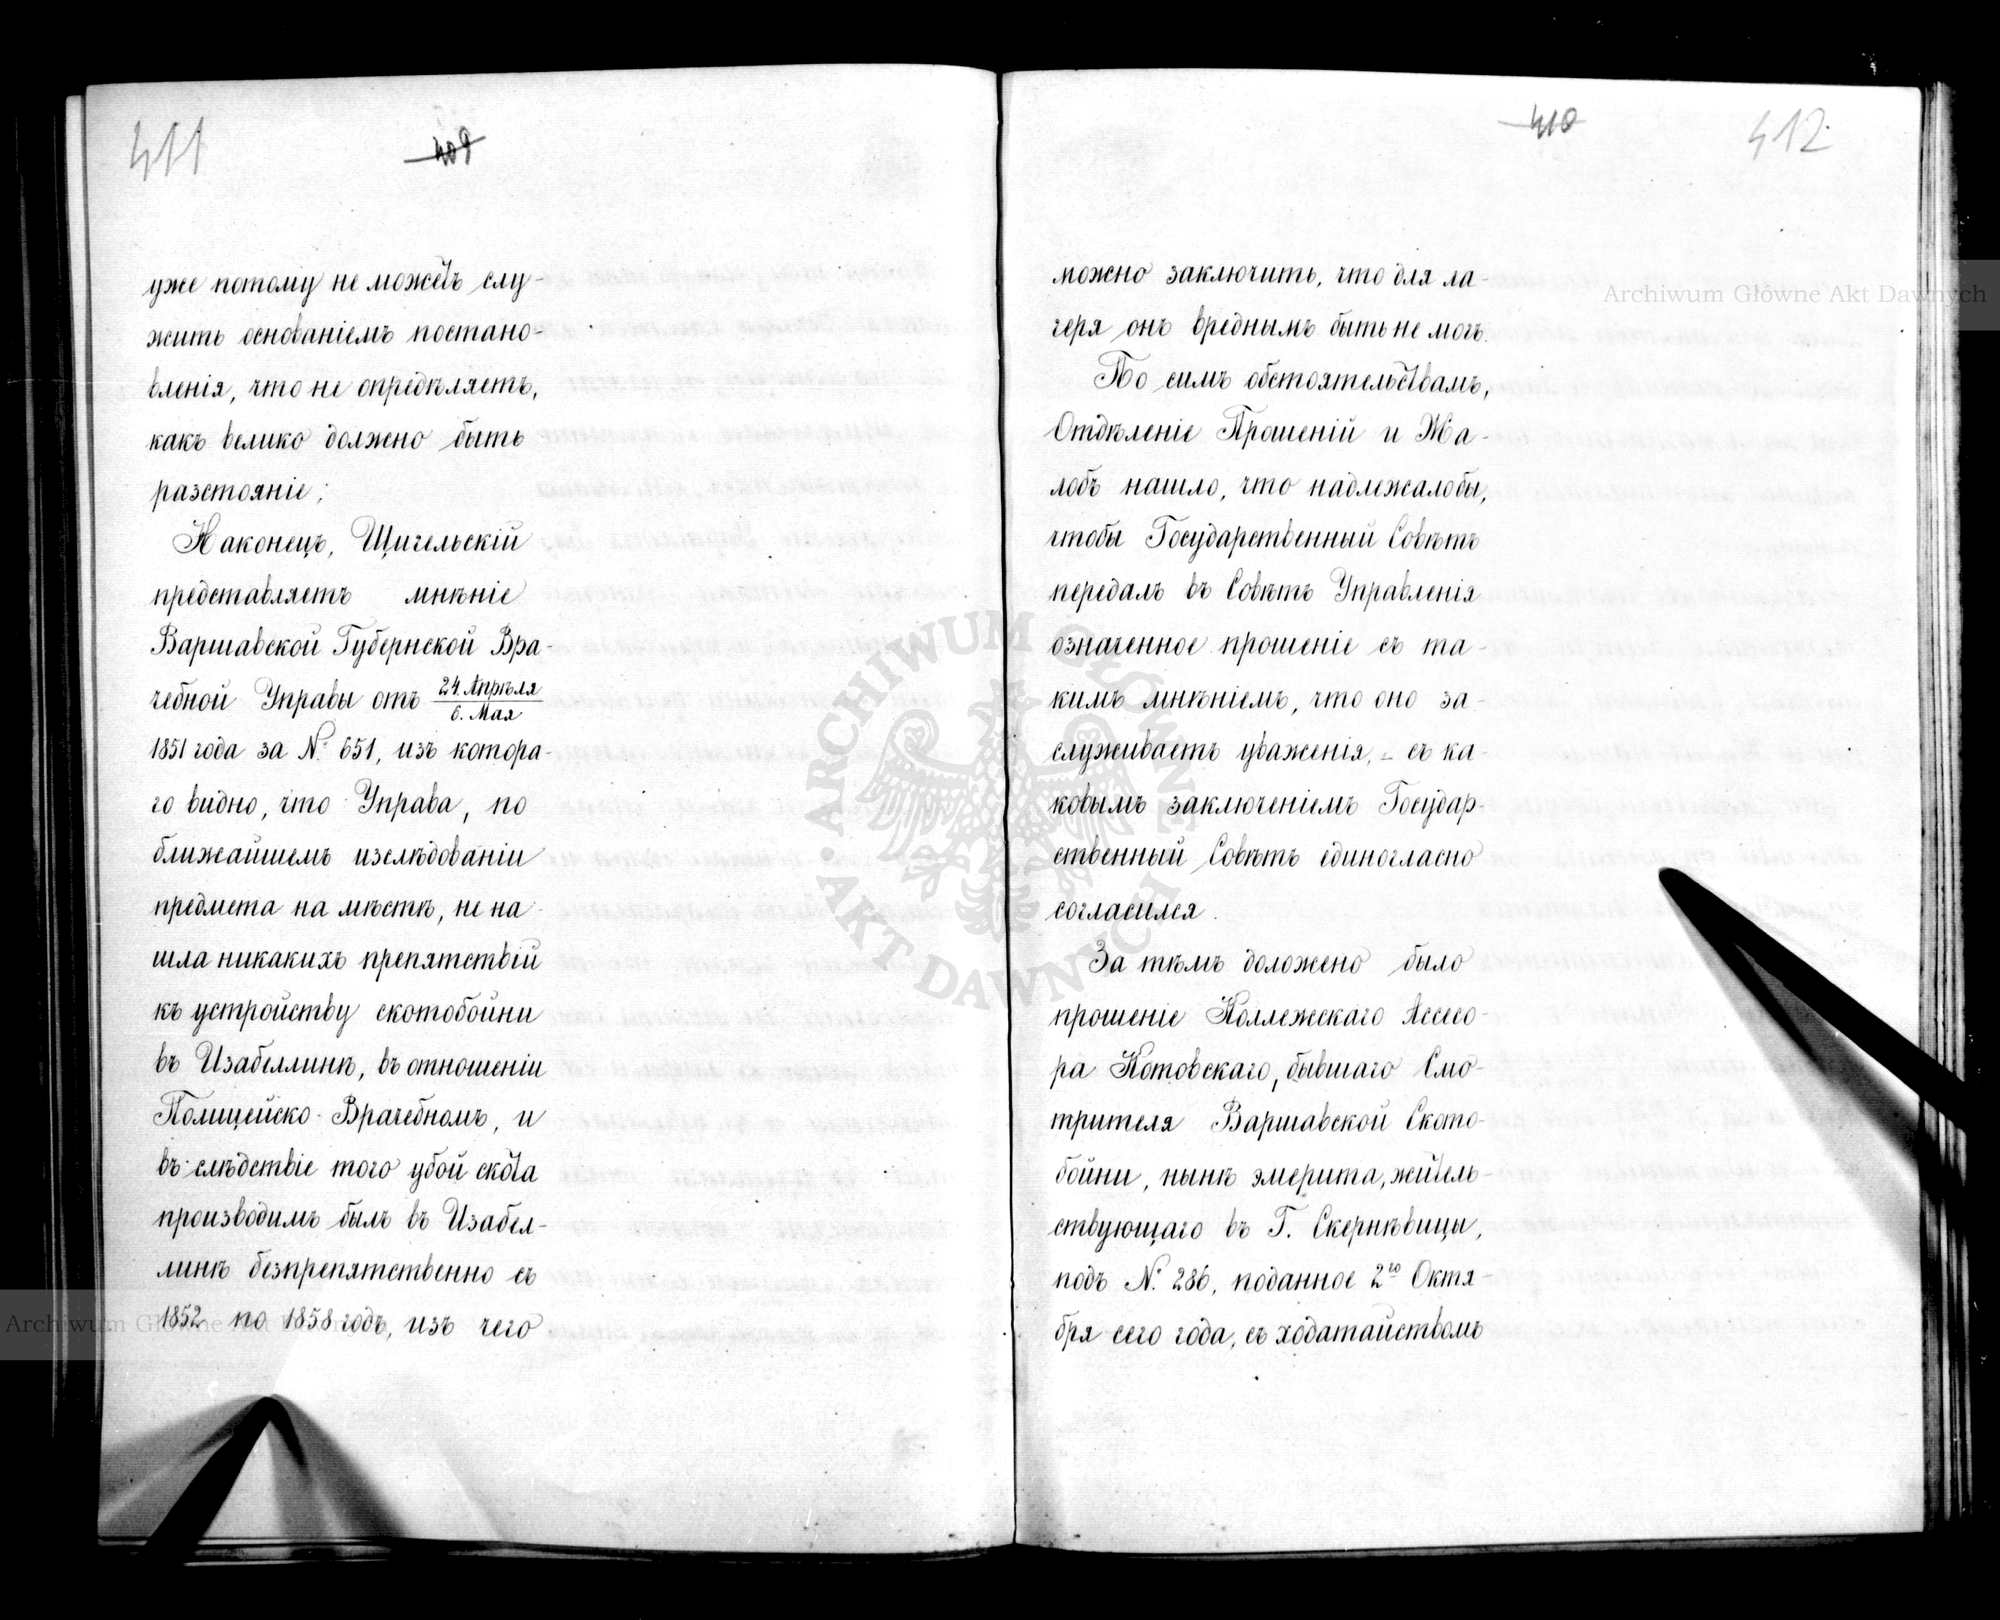 411
409
уже потому не можетъ слу-
жить основаніемъ постано-
вленія, что не опредѣляетъ,
какъ велико должно быть
разстояніе;
Наконецъ, Щигельскій
представляетъ мнѣніе
Варшавской Губернской Вра-
чебной Управы отъ 24. Апрѣля / 6. Мая
1851 года за №. 651, изъ котора-
го видно, что Управа, по
ближайшемъ изслѣдованіи
предмета на мѣстѣ, не на-
шла никакихъ препятствій
къ устройству скотобойни
въ Изабеллинѣ, въ отношеніи
Полицейско-Врачебномъ, и
въ слѣдствіе того убой скота
производимъ былъ въ Изабел-
линѣ безпрепятственно съ
1852 по 1858 годъ, изъ чего
410
412
можно заключить, что для ла-
геря онъ вреднымъ быть не могъ.
По симъ обстоятельствамъ,
Отдѣленіе Прошеній и Жа-
лобъ нашло, что надлежалобы,
чтобы Государственный Совѣтъ
передалъ въ Совѣтъ Управленія
означенное прошеніе съ та-
кимъ мнѣніемъ, что оно за-
служиваетъ уваженія, – съ ка-
ковымъ заключеніемъ Государ-
ственный Совѣтъ единогласно
согласился.
За тѣмъ доложено было
прошеніе Коллежскаго Ассесо-
ра Котовскаго, бывшаго Смо-
трителя Варшавской Ското-
бойни, нынѣ эмерита, житель-
ствующаго въ Г. Скернѣвицы,
подъ №. 286, поданное 2го Октя-
бря сего года, съ ходатайствомъ
Archiwum Główne Akt Dawnych
ARCHIWUM GŁÓWNE • AKT DAWNYCH •
Archiwum Główne Akt Dawnych